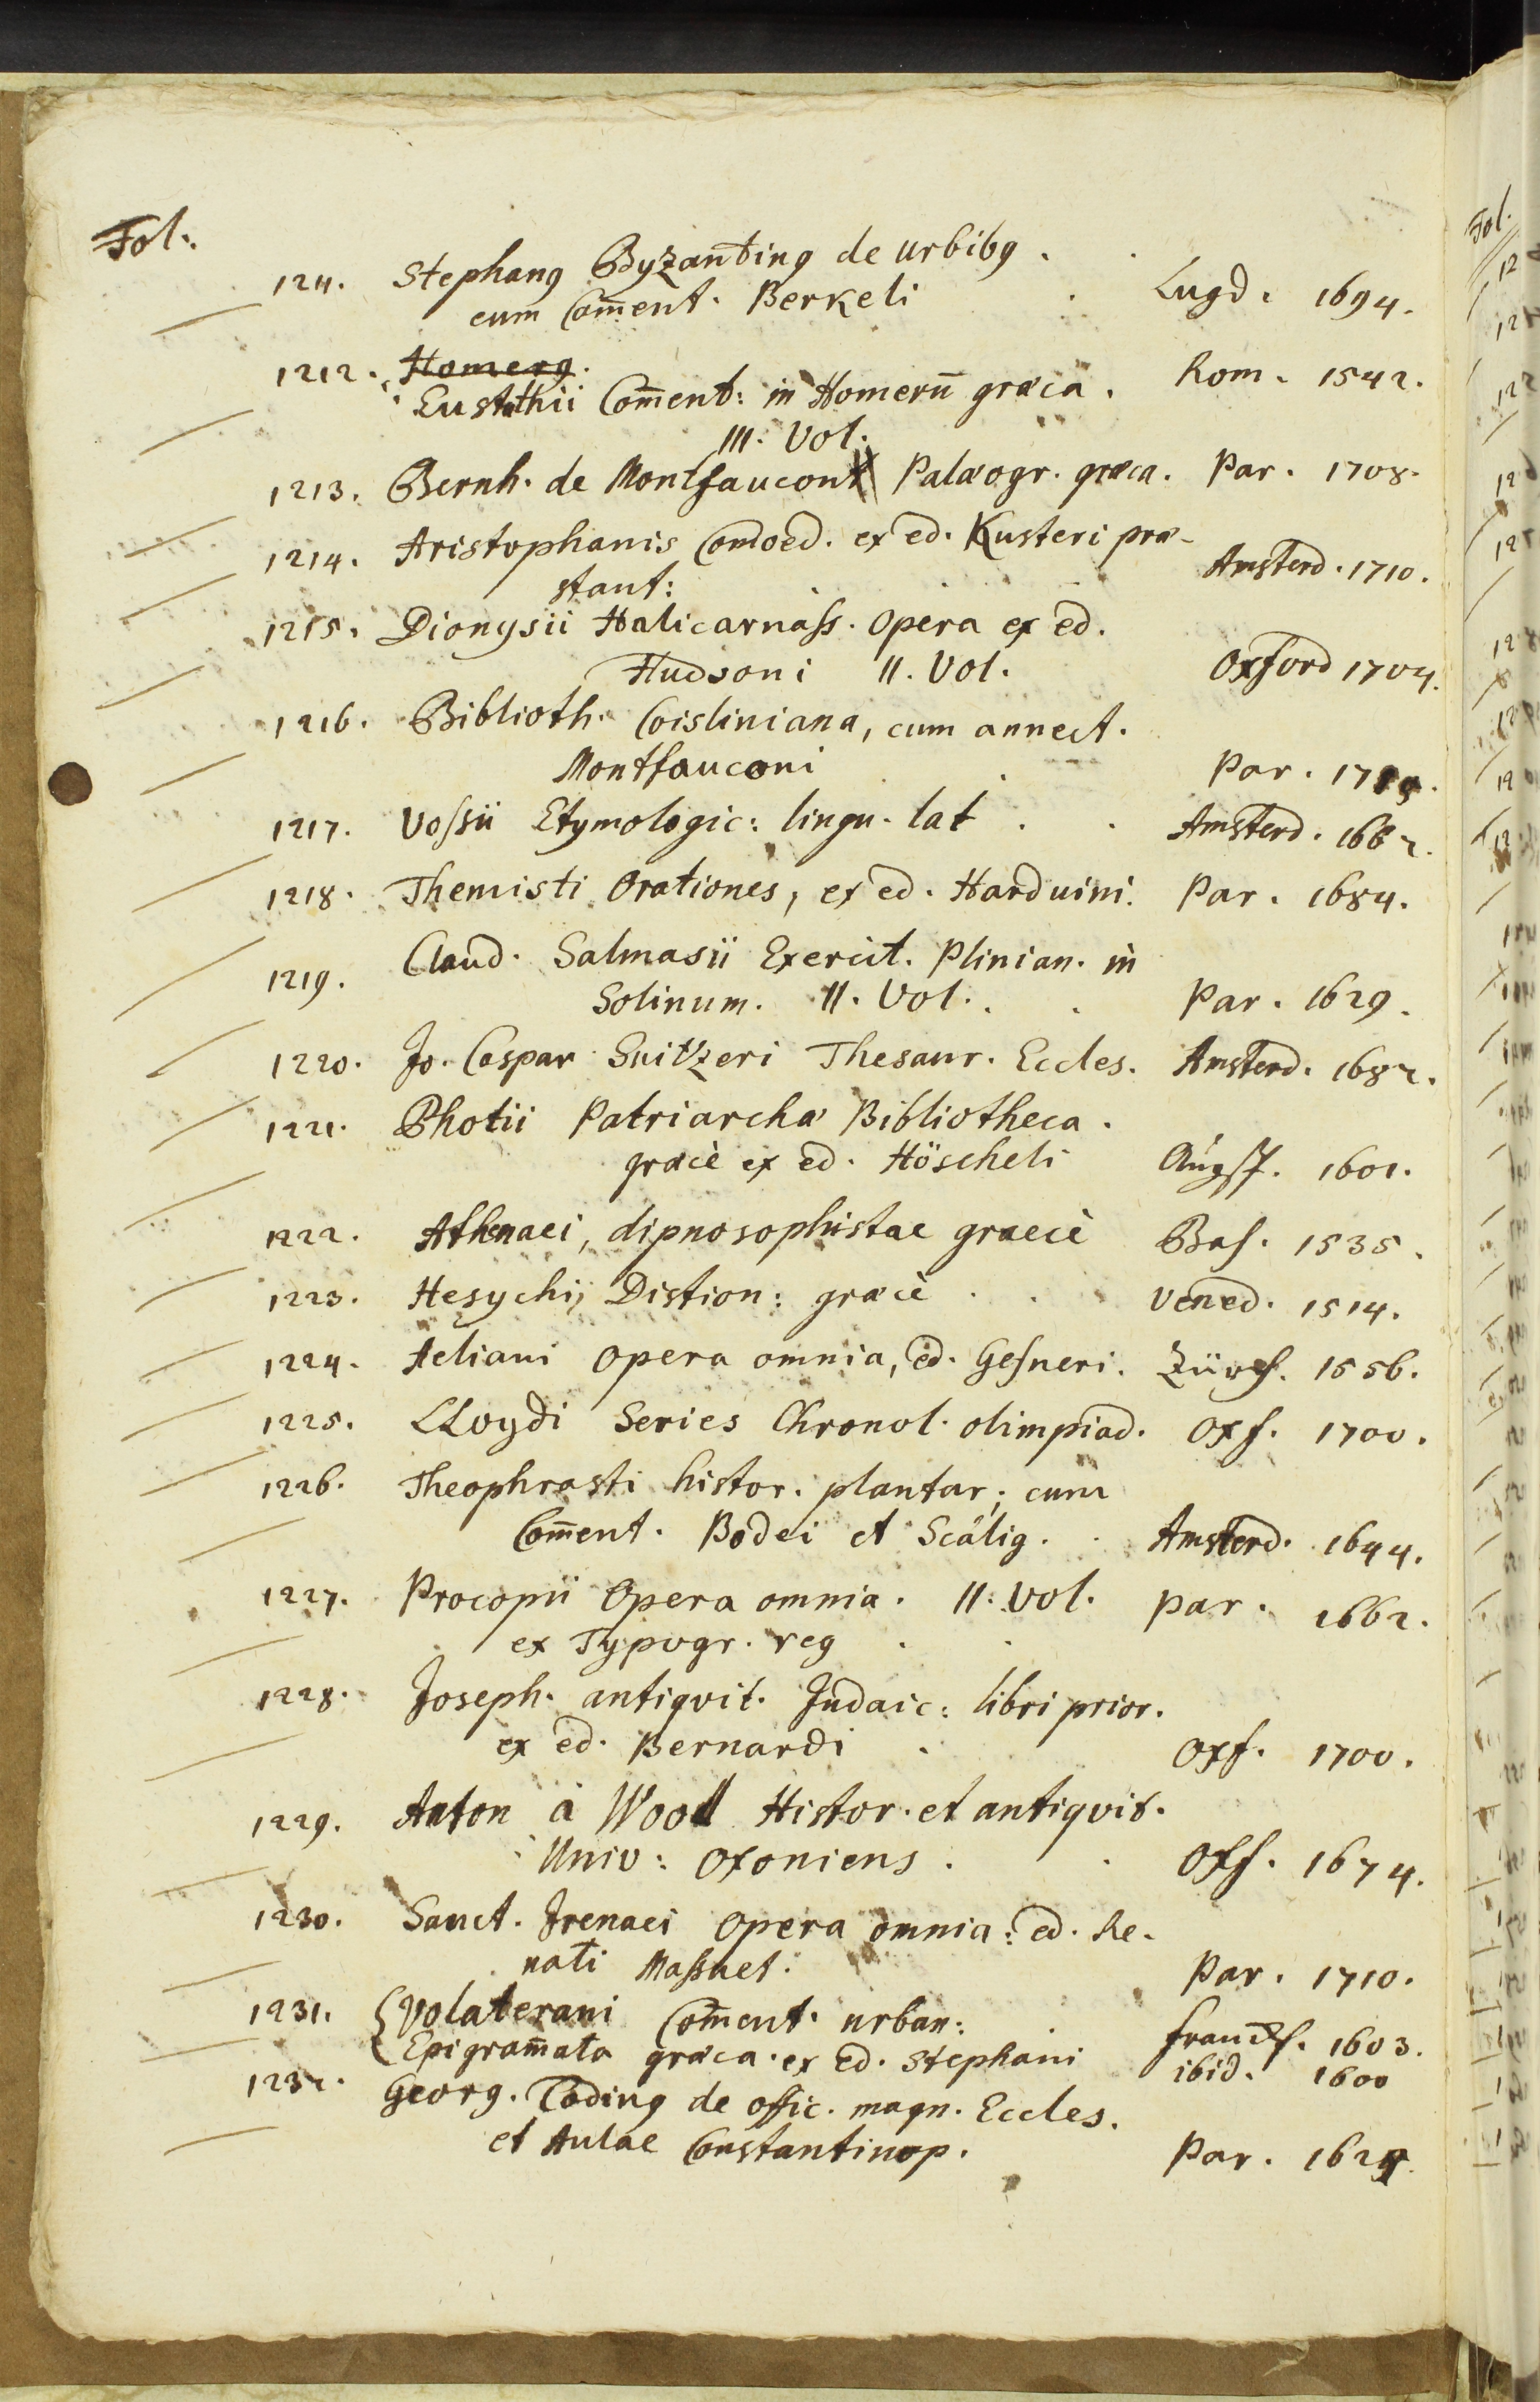 Fol.
1211. Stephanꝰ Byzantinꝰ de urbibꝰ .
cum Com̄ent. Berkeli . Lugd. 1694.
1212. Homerꝰ.
Eustathii Com̄ent: in Homerū græca. Rom. 1542.
III. Vol.
1213. Bernh. de Montfaucon Palæogr. græca. Par. 1708.
1214. Aristophanis Comoed. ex ed. Kusteri præ-
stant: Amsterd. 1710.
1215. Dionysii Halicarnass. Opera ex ed.
Hudsoni II. Vol. Oxford 1704.
1216. Biblioth. Coisliniana, cum annect.
Montfauconi Par. 1715.
1217. Vossii Etymologic: lingu. lat . . Amsterd. 1662.
1218. Themisti Orationes, ex ed. Harduini. Par. 1684.
1219. Claud. Salmasii Exercit. Plinian. in
Solinum. II. Vol. . . Par. 1629.
1220. Jo. Caspar Suitzeri Thesaur. Eccles. Amsterd. 1682.
1221. Photii Patriarchæ Bibliotheca.
græcè ex ed. Höscheli Augsp. 1601.
1222. Athenaei, dipnosophistae graecè Bas. 1535.
1223. Hesychij Distion: græcè . . Vened. 1514.
1224. Aeliani Opera omnia, ed. Gesneri. Zürch. 1556.
1225. LLoydi Series Chronol. olimpiad. Oxf. 1700.
1226. Theophrasti histor. plantar; cum
Com̄ent. Bodei et Scalig. . Amsterd. 1644.
1227. Procopii Opera omnia. II. Vol. Par. 1662.
ex Typogr. reg . .
1228. Joseph. antiqvit. Judaic: libri prior.
ex ed. Bernardi . Oxf. 1700.
1229. Anton à Wood Histor. et antiqvit.
Univ: Oxoniens . . Oxf. 1674.
1230. Sanct. Irenaei Opera omnia: ed. Re-
nati Massuet. Par. 1710.
1231. { Volaterani Com̄ent. urban: . Franckf. 1603.
Epigram̄ata græca. ex ed. Stephani ibid. 1600
1232. Georg. Codinꝰ de offic. magn. Eccles.
et Aulae Constantinop. Par. 1625.
Fol.